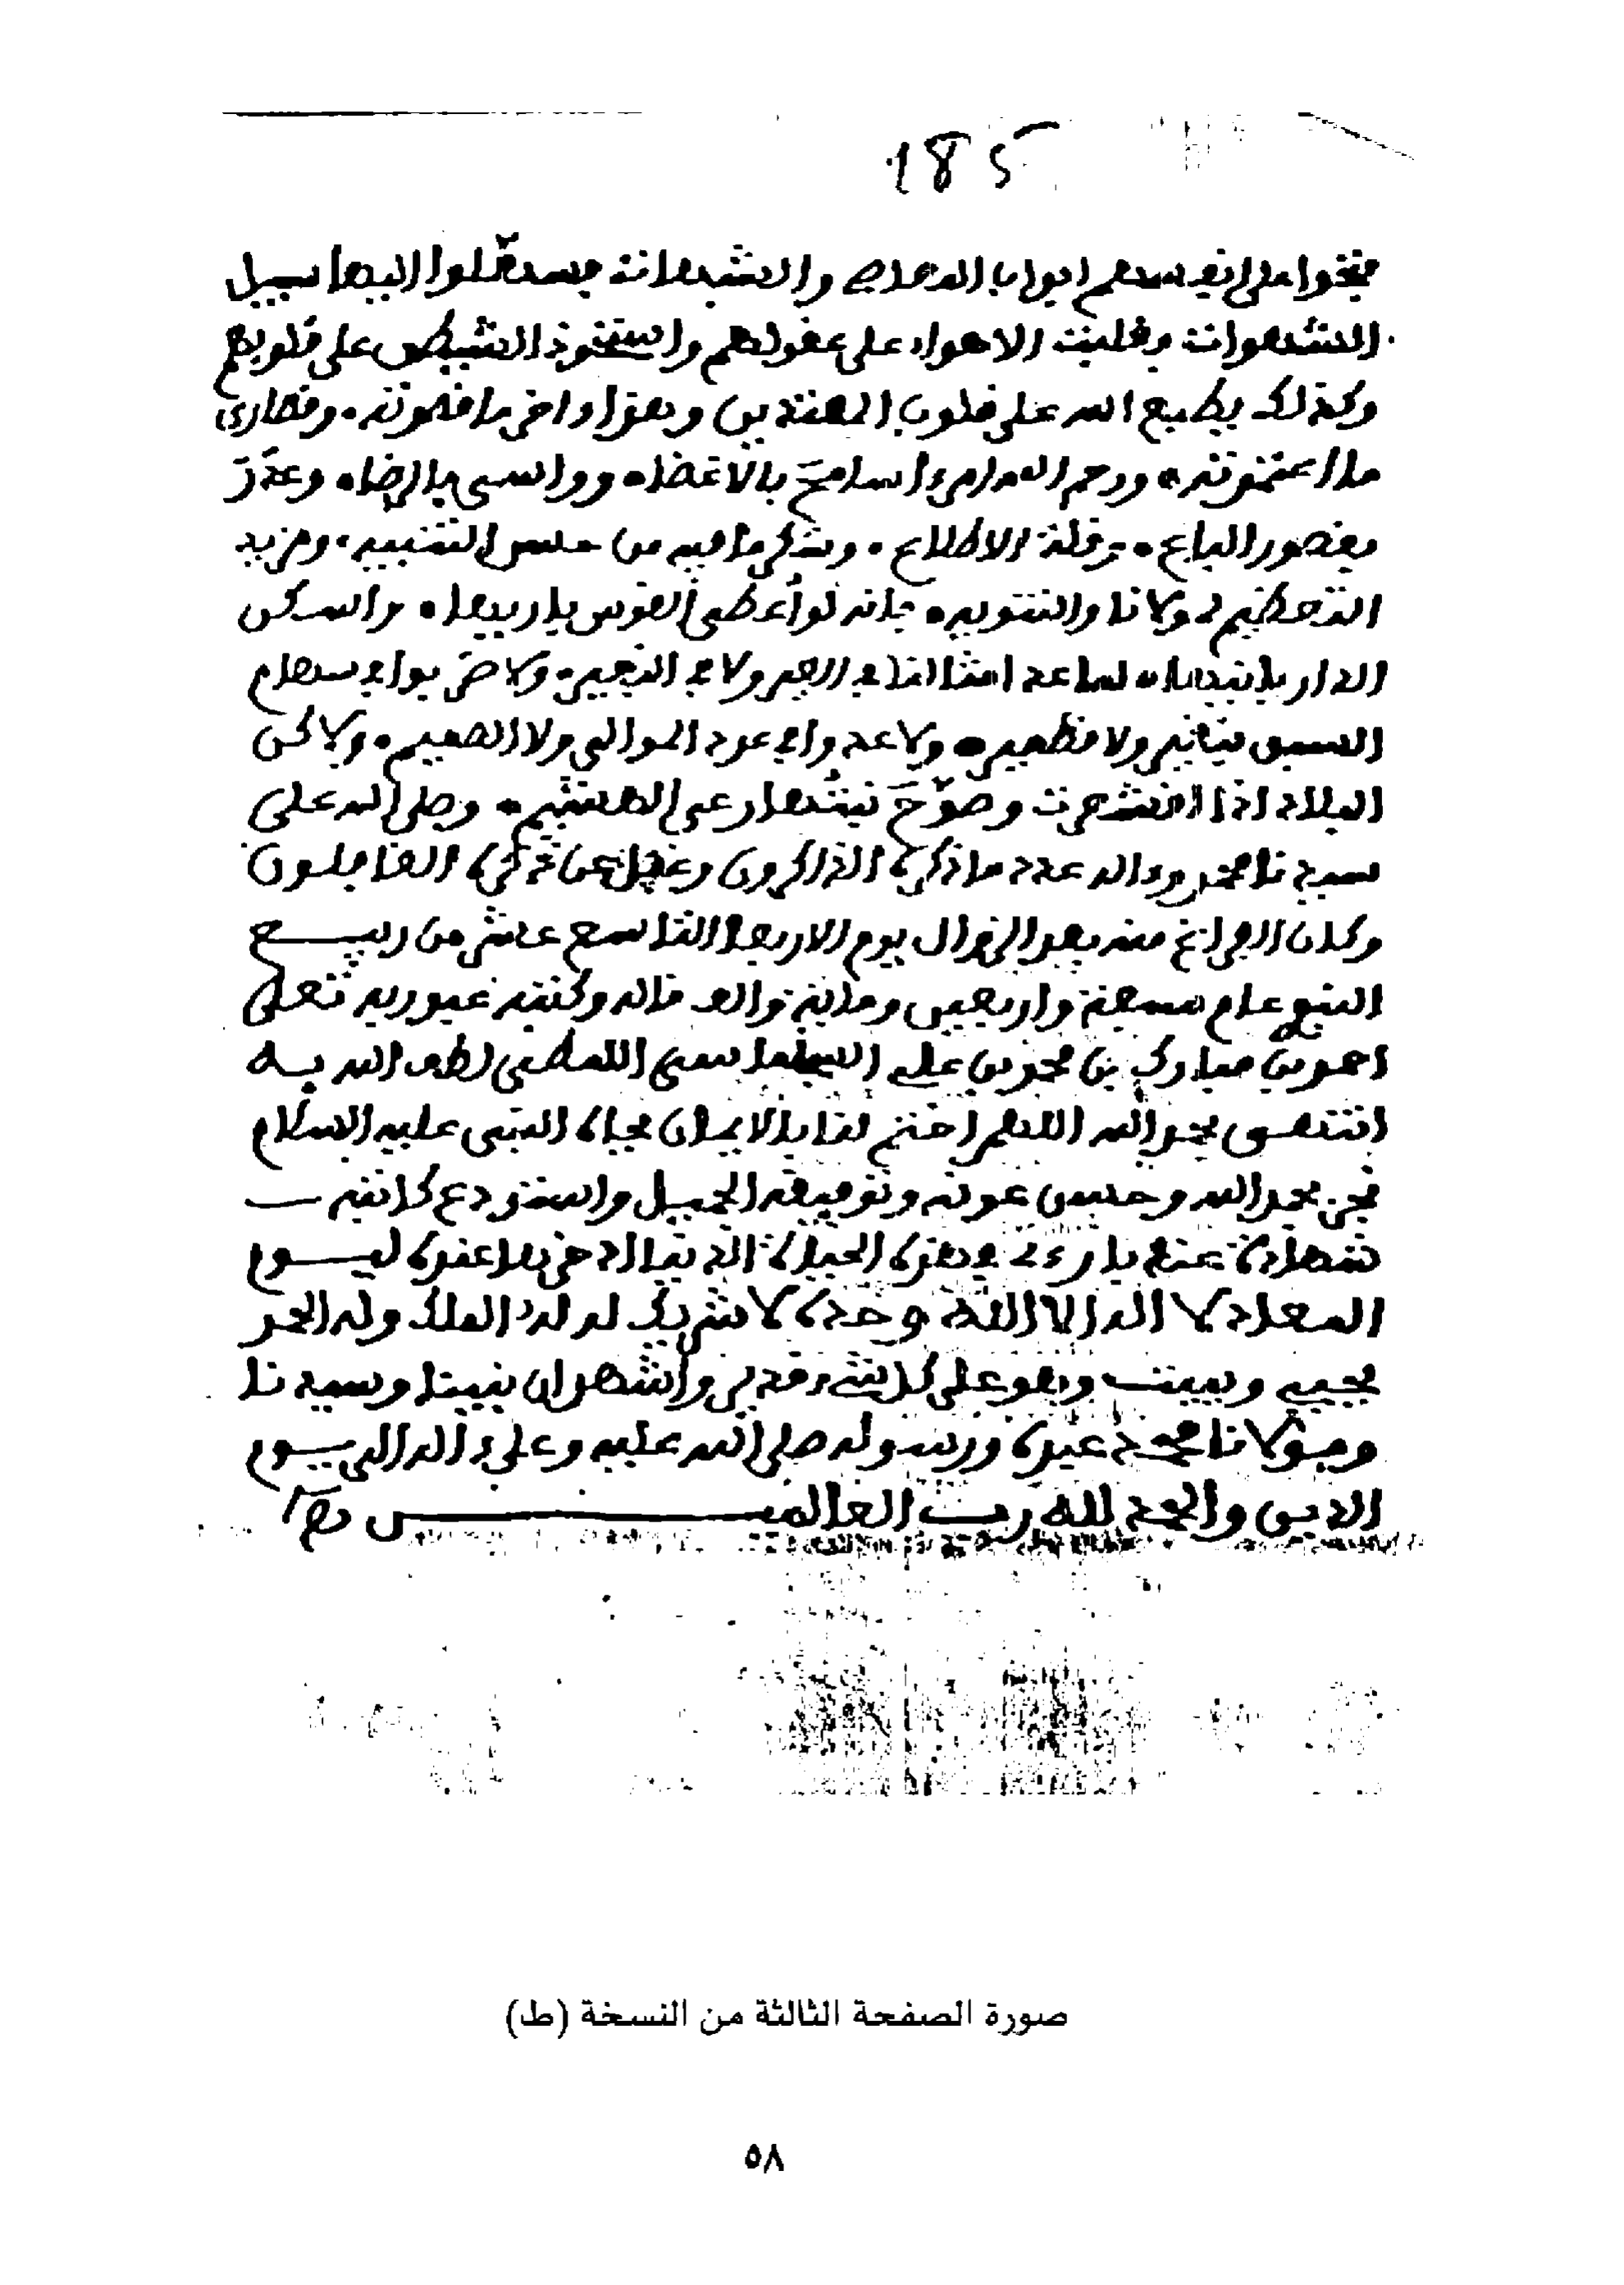 185
على انفسهم ابواب والشبهات اليها سبيل
الشهوات وغلبت الاهواء على عقولهم واستحوذ الشيطن على قلوبهم
وكذلك يطبع الله على قلوب المعتدين وهذا اواخر ما قصدته. وقصارى
ما اعتمدته. ورحم الله امرءا سامح بالاغضاء وواسى بالرضاء وعذر
بقصور الباع. وقلة الاطلاع. وشكر ما فيه من التنبيه. ومزيد
والتنويه. فانه لو أعطي القوس باريها. واسكن
الدار بانيها. لما عد امثالنا في العير ولا في النفير. ولا ضربوا في سهام
السبق ولا ولا عدوا في الموالي ولا الصميم. ولاكن
البلاد اذا اقشعرت وصوّح نبتها رعي الهشيم. وصلى الله على
سيدنا محمد وءاله عدد ما ذكره الذاكرون وغفل عن ذكره الغافلون
وكان الفراغ منه بعد الزوال يوم الاربعا التاسع عشر من ربيع
عام سبعة واربعين ومائة والف قاله وكتبه عبيد ربه تعلى
احمد بن مبارك بن محمد بن علي السجلماسي اللمطي لطف الله به
انتهى بحمد الله اللهم اختم لنا بالايمان بجاه النبي عليه السلام
بحمد الله وحسن عونه وتوفيقه الجميل واستودع كاتبه
شهادة عندك يا رب في هذه الحياة الدنيا ليوم
المعاد لا اله الا الله وحده لا شريك له له الملك وله الحمد
يحيي ويميت وهو على كل شيء قدير واشهد ان نبينا وسيدنا
ومولانا محمد عبده ورسوله صلى الله عليه وعلى ءاله الى يوم
الدين والحمد لله رب العالمين
صورة الصفحة الثالثة من النسخة (ط)
٥٨